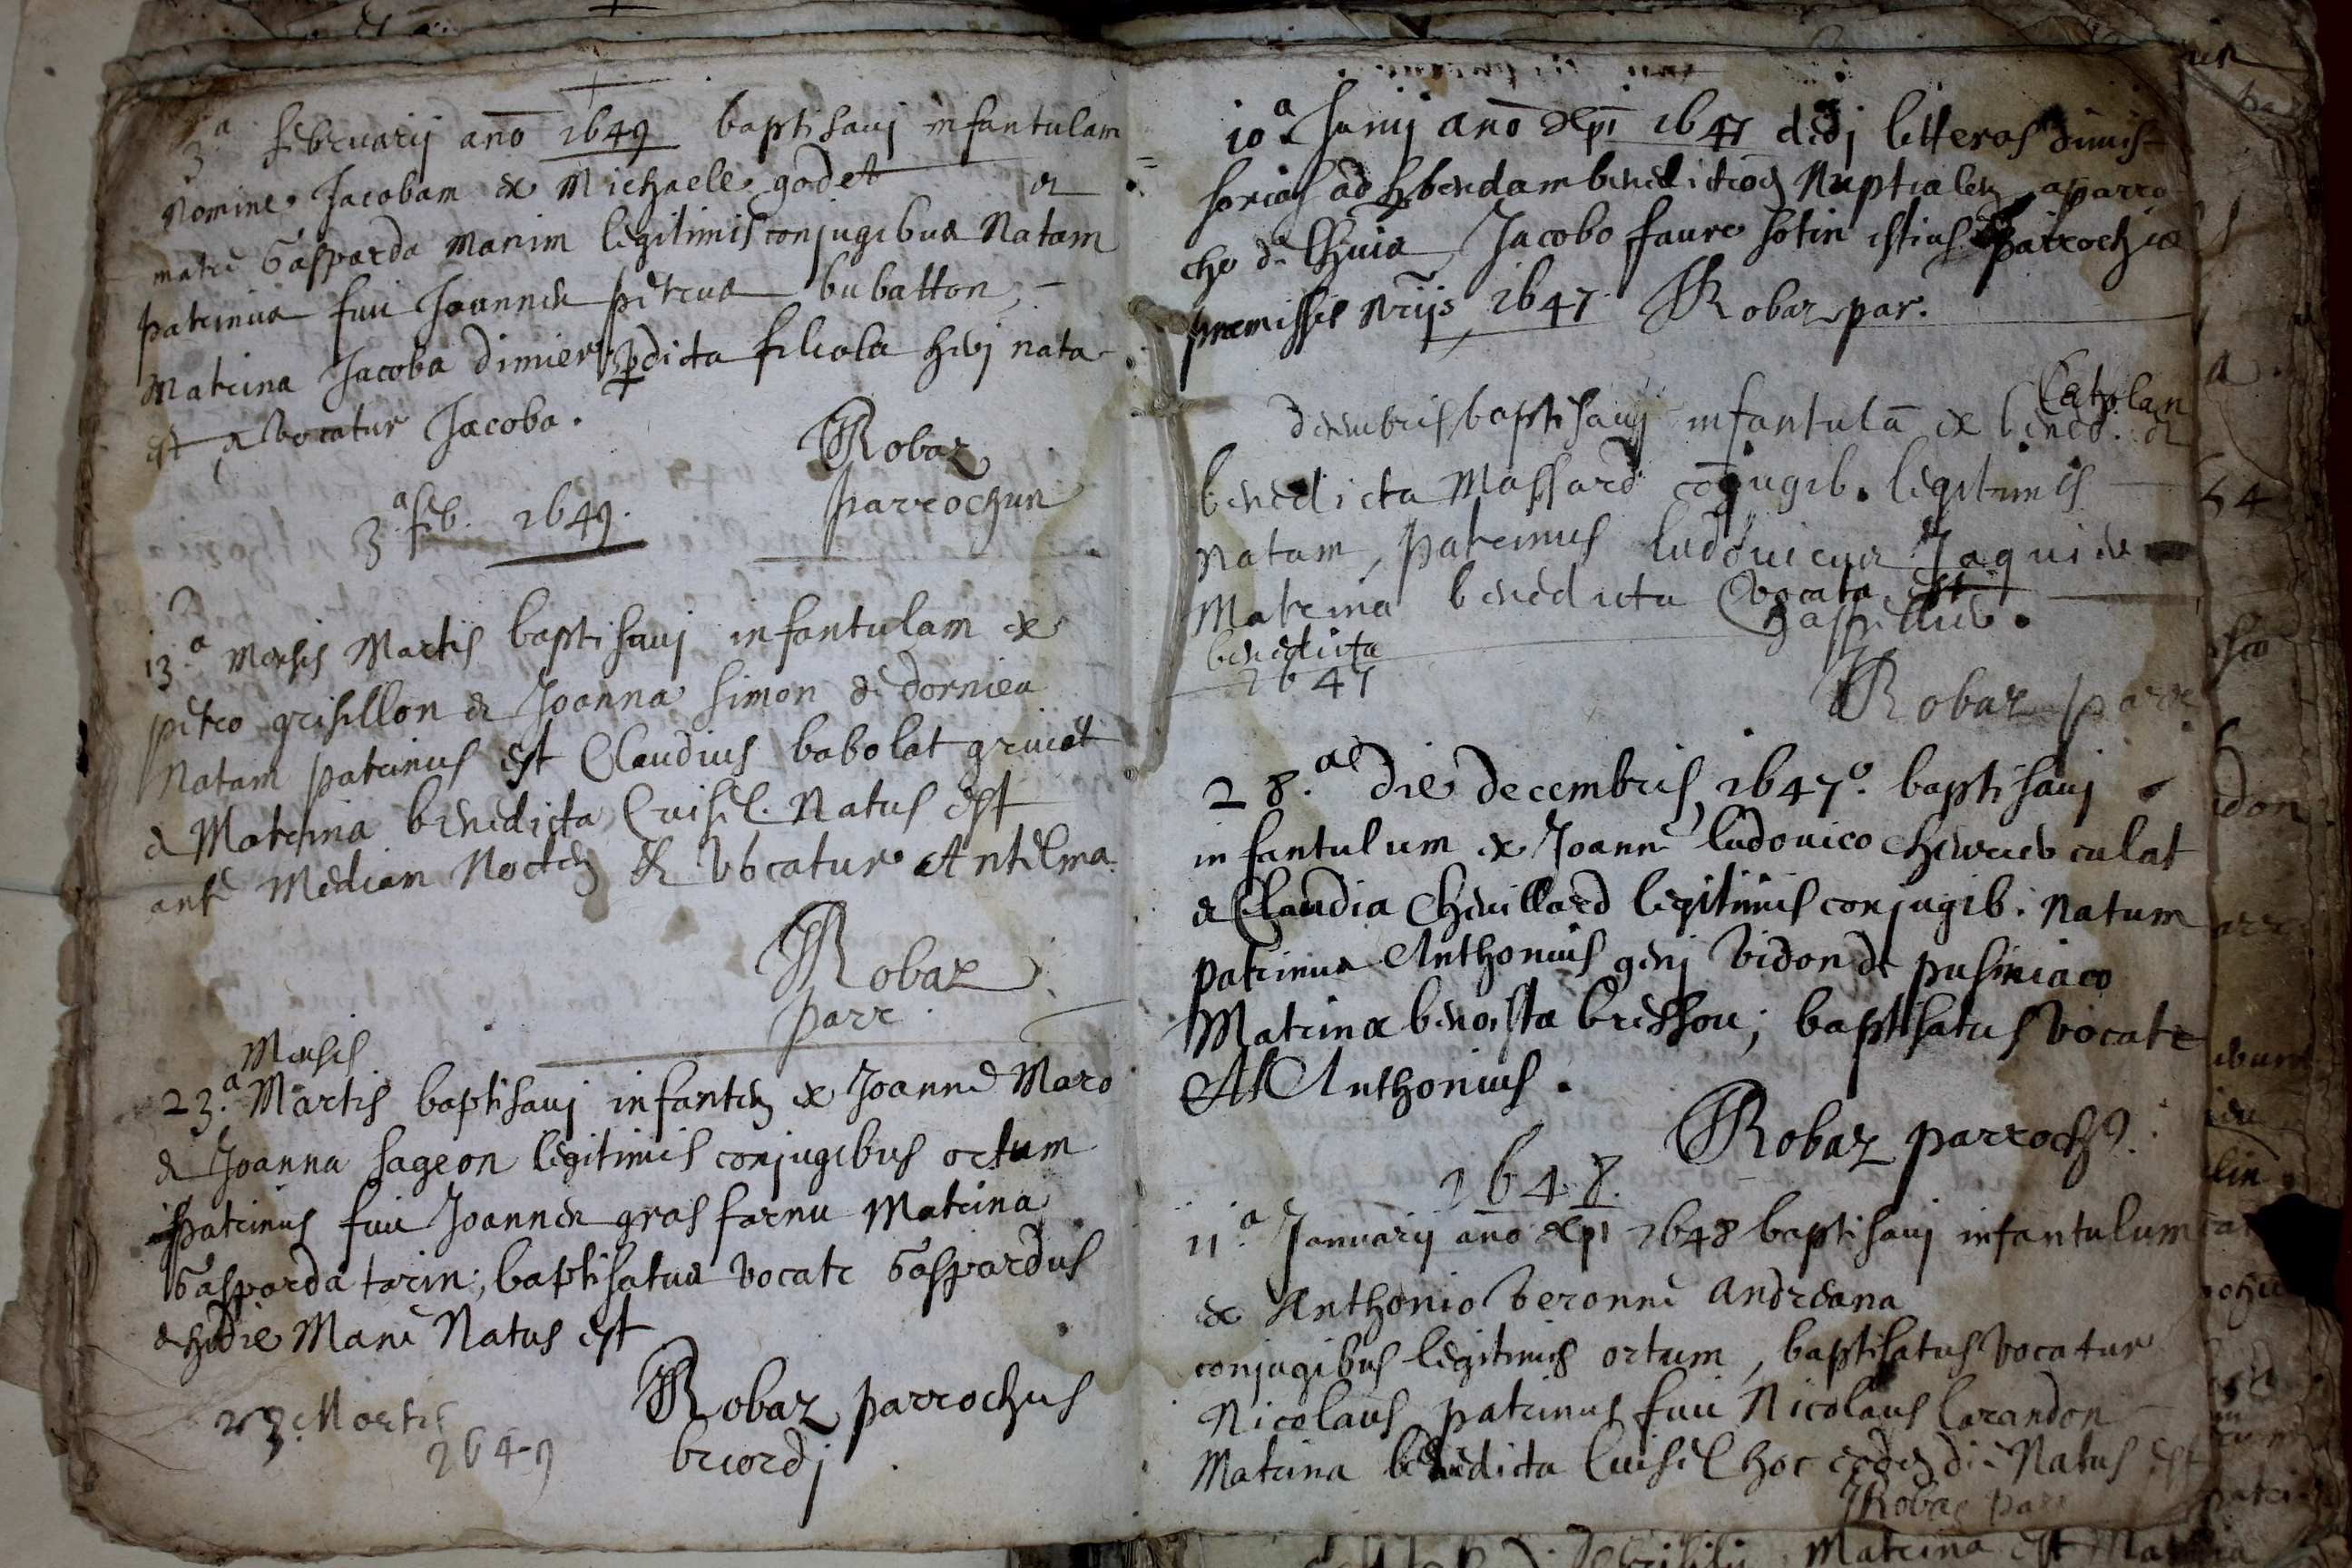 3.a februarij ano 1649 baptisavj infantulam
Nomine Jacobam ex Michaele godet et
matre Gasparda manim legitimis conjugibus Natam
patrinus fuit Joannes petrus bubatton,
Matrina Jacoba dimier, pdicta filiola hevj nata
est & vocatur Jacoba.
Robaz
parrochus
3.a feb. 1649.
13.a Mensis Martis baptisavj infantulam ex
petro grisillon et Joanna simon de dornieu
Natam patrinus est Claudius babolat gruiat
& Matrina benedicta Cuisel. Natus est
ante Mediam Noctem & vocatur Antelma.
Robaz
parr.
Mensis
23.a Martis baptisavj infantem ex Joanne Maro
& Joanna sageon legitimis conjugibus ortum
patrinus fuit Joannes gros farnu Matrina
Gasparda tarin; baptisatus vocatr Gaspardus
& hodie Mane Natus est
Robaz parrochus
briordj
23. Martis
1649
10.a Junij ano xpi 1647 dedj litteras dimis-
sorias ad hbendam benedictioem Nuptialem a parro
cho de lhuis Jacobo faure sotin istius parrochiæ
præmissis Nrijs 1647 Robaz par.
Catolan
decembris baptisavj infantulā ex bened. et
benedicta Massard cojugib. legitimis
Natam, patrinus ludovicus Jaquier
Matrina benedicta vocata est
benedicta
1647
Robaz parr
28.ae die decembris 1647o. baptisavj
infantulum ex Joanne ludovico culat
& Claudia Chevillard legitimis conjugib. Natum
patrinus Anthonius genj vidon de pusiniaco
Matrina benoista bresson; baptisatus vocatr
Anthonius.
Robaz parroch9.
1648.
11.a Januarij ano xpi 1648 baptisavj infantulum
ex Anthonio veronne andreana
conjugibus legitimis ortum, baptisatus vocatur
Nicolaus patrinus fuit Nicolaus Carandon
Matrina benedicta Cuisel hoc eodem die Natus est
Robaz parr
Matrina est